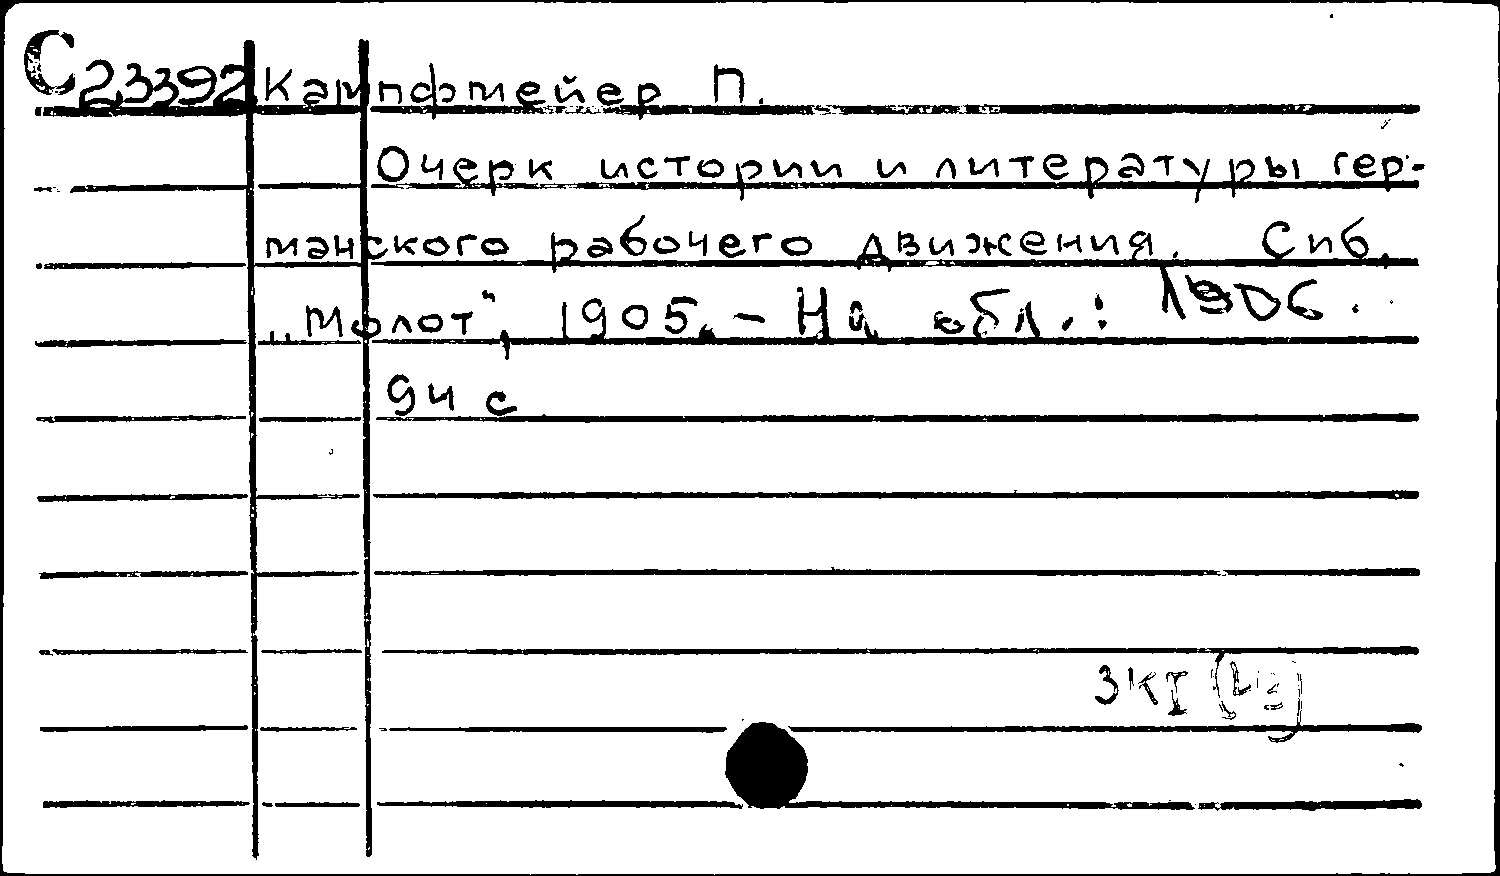 С 23392 Кампфмейер П.
Очерк истории и литературы гер-
манского рабочего движения. Спб,
„Молот“, 1905. – На обл.: 1906.
94 с
3КI